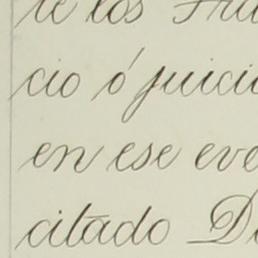 te los Fra
cio ó juicio
en ese eve
citado D